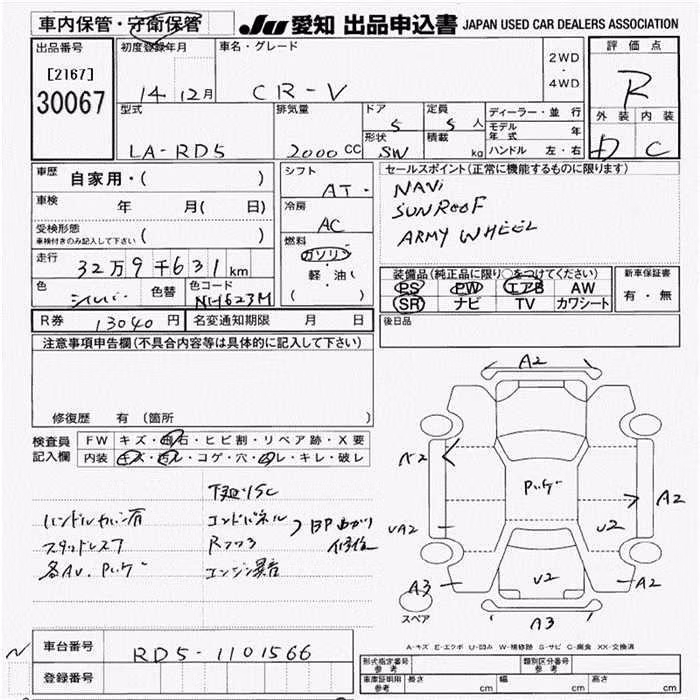 車内保管・守衛保管
JU 愛知 出品申込書 JAPAN USED CAR DEALERS ASSOCIATION
出品番号 初度登録年月 車名・グレード 評価点
[2167]
30067
14 12月 CR-V
2WD
・
4WD
R
外装 内装
C
型式 排気量 ドア 定員 ディーラー・並行
LA-RD5 2000CC 5 5人
モデル年式 年
形状 積載 ハンドル 左・右
SW kg
車歴 自家用・( )
シフト AT・
セールスポイント(正常に機能するものに限ります)
NAVi
SUNROOF
ARMY WHEEL
車検 年 月( 日)
冷房 AC
受検形態
車検付きのみ記入して下さい ( )
燃料 ガソリン
軽・油(
( )
走行 32万9千631km
色 シルバー 色替 色コード NH623M
装備品(純正品に限り○をつけてください) 新車保証書
PS PW エアB AW
SR ナビ TV カワシート
有・無
R券 13040円 名変通知期限 月 日
後日品
注意事項申告欄(不具合内容等は具体的に記入して下さい)
修復歴 有 (箇所
検査員記入欄
FW キズ・飛石・ヒビ割・リペア跡・X要
内装 キズ・汚レ・コゲ・穴・スレ・キレ・破レ
コンドパネル
スタッドレス7
修正
A2
A2
A2
UA2
U2
A3
U2
A2
A3
スペア
A-キズ E-エクボ U-凹み W-補修跡 S-サビ C-腐食 XX-交換済
N
車台番号 RD5-1101566
登録番号
形式指定番号 参考 類別区分番号 参考
車庫証明用 参考 長さ cm 幅 cm 高さ cm